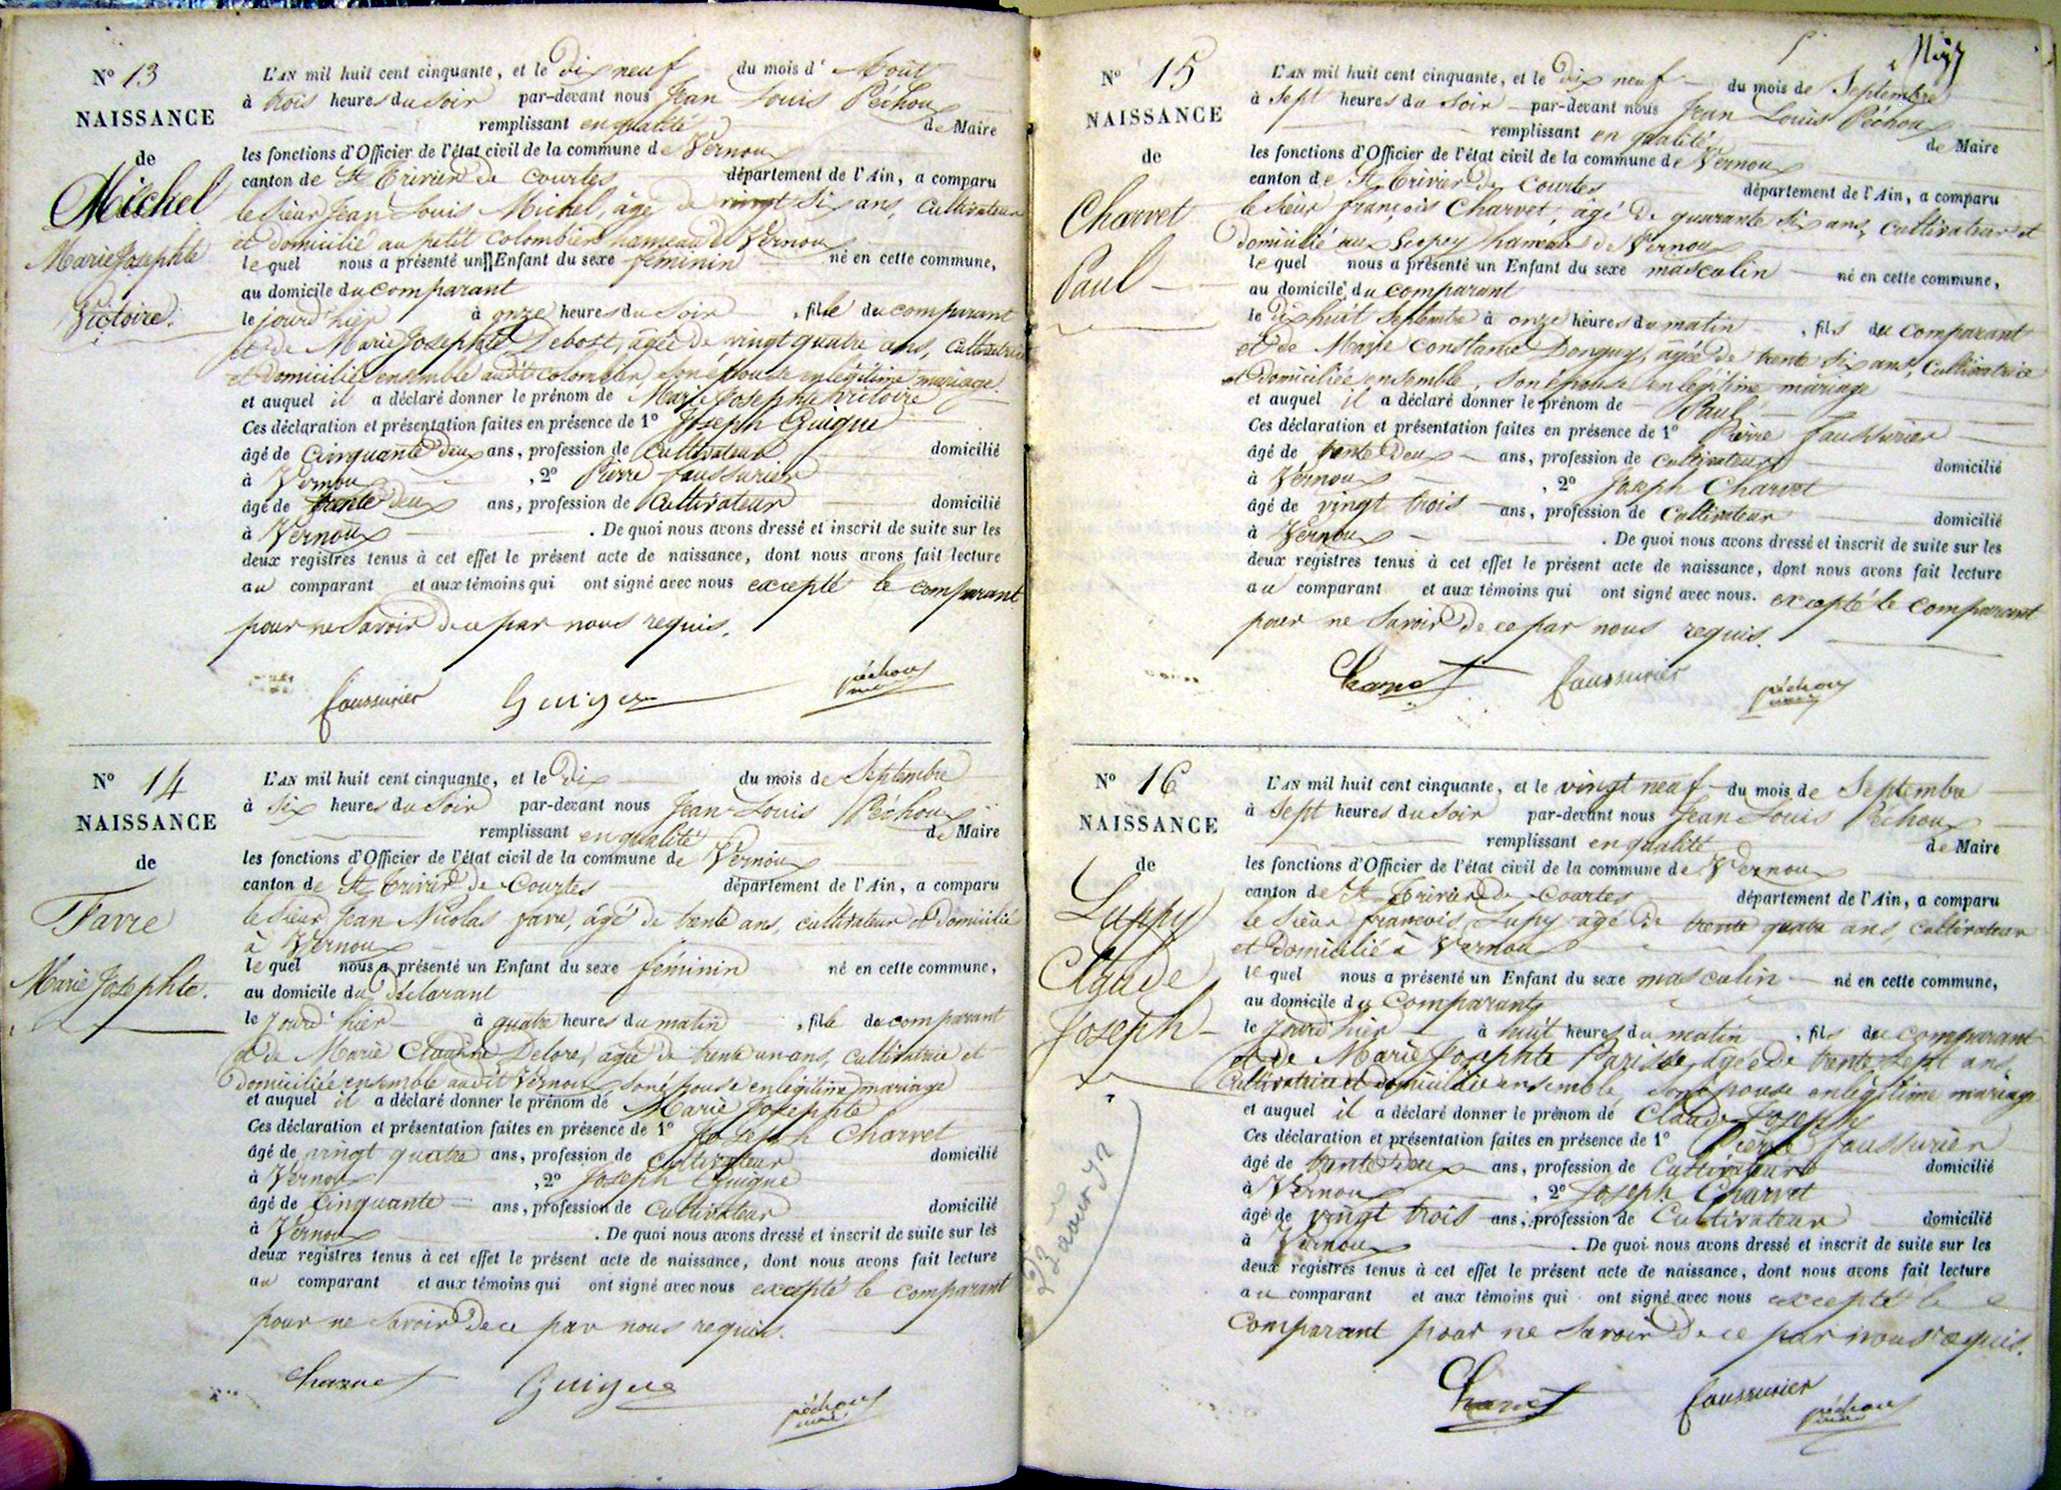 N° 13
NAISSANCE
de
Michel
Marie Josephte
Victoire.
L'AN mil huit cent cinquante, et le Dix neuf du mois d' Août
à trois heures du Soir par-devant nous Jean Louis Péchoux
remplissant en qualité de Maire
les fonctions d'Officier de l'état civil de la commune de Vernoux
canton de St Trivier de Courtes département de l'Ain, a comparu
le Sieur Jean Louis Michel, âgé de vingt Six ans, Cultivateur
et domicilié au petit Colombier hameau de Vernoux
lequel nous a présenté un Enfant du sexe féminin né en cette commune,
au domicile du comparant
le jourd'hier à onze heures du Soir, fille du comparant
et de Marie Josephte Debost, âgée de vingt quatre ans, Cultivatrice
et domiciliée ensemble audit colombier, son épouse en légitime mariage
et auquel il a déclaré donner le prénom de Marie Josephte Victoire
Ces déclaration et présentation faites en présence de 1° Joseph Guigue
âgé de Cinquante deux ans, profession de Cultivateur domicilié
à Vernoux, 2° Pierre Faussurier
âgé de trente deux ans, profession de Cultivateur domicilié
à Vernoux. De quoi nous avons dressé et inscrit de suite sur les
deux registres tenus à cet effet le présent acte de naissance, dont nous avons fait lecture
au comparant et aux témoins qui ont signé avec nous excepté le comparant
pour ne Savoir de ce par nous requis.
faussurier Guigue péchoux
maire
N° 14
NAISSANCE
de
Favre
Marie Josephte.
L'AN mil huit cent cinquante, et le Dix du mois de Septembre
à Six heures du Soir par-devant nous Jean Louis Péchoux
remplissant en qualité de Maire
les fonctions d'Officier de l'état civil de la commune de Vernoux
canton de St Trivier de Courtes département de l'Ain, a comparu
le Sieur Jean Nicolas Favre, âgé de trente ans, cultivateur et Domicilié
à Vernoux
lequel nous a présenté un Enfant du sexe féminin né en cette commune,
au domicile du déclarant
le jourd'hier à quatre heures du matin, fille du comparant
et de Marie Claudine Delore, âgée de trente un ans, Cultivatrice et
domiciliée ensemble audit Vernoux son épouse en légitime mariage
et auquel il a déclaré donner le prénom de Marie Josephte
Ces déclaration et présentation faites en présence de 1° Joseph Charvet
âgé de vingt quatre ans, profession de cultivateur domicilié
à Vernoux, 2° Joseph Guigue
âgé de Cinquante ans, profession de Cultivateur domicilié
à Vernoux. De quoi nous avons dressé et inscrit de suite sur les
deux registres tenus à cet effet le présent acte de naissance, dont nous avons fait lecture
au comparant et aux témoins qui ont signé avec nous excepté le comparant
pour ne Savoir de ce par nous requis.
Charvet Guigue péchoux
maire
N° 15
NAISSANCE
de
Charvet
Paul
L'AN mil huit cent cinquante, et le Dix neuf du mois de Septembre
à Sept heures du Soir par-devant nous Jean Louis Péchoux
remplissant en qualité de Maire
les fonctions d'Officier de l'état civil de la commune de Vernoux
canton de St Trivier de Courtes département de l'Ain, a comparu
le Sieur François Charvet, âgé de quarante Six ans, cultivateur et
domicilié aux hameau de Vernoux
lequel nous a présenté un Enfant du sexe masculin né en cette commune,
au domicile du comparant
le dix huit Septembre à onze heures du matin, fils du comparant
et de Marie Constance Donguy, âgée de trente Six ans, Cultivatrice
et Domiciliée ensemble, son épouse en légitime mariage
et auquel il a déclaré donner le prénom de Paul
Ces déclaration et présentation faites en présence de 1° Pierre faussurier
âgé de trente Deux ans, profession de Cultivateur domicilié
à Vernoux, 2° Joseph Charvet
âgé de vingt trois ans, profession de Cultivateur domicilié
à Vernoux. De quoi nous avons dressé et inscrit de suite sur les
deux registres tenus à cet effet le présent acte de naissance, dont nous avons fait lecture
au comparant et aux témoins qui ont signé avec nous. excepté le comparant
pour ne Savoir de ce par nous requis.
Charvet faussurier péchoux
maire
N° 16
NAISSANCE
de
Luppy
Claude
Joseph
L'AN mil huit cent cinquante, et le vingt neuf du mois de Septembre
à Sept heures du Soir par-devant nous Jean Louis Péchoux
remplissant en qualité de Maire
les fonctions d'Officier de l'état civil de la commune de Vernoux
canton de St Trivier de Courtes département de l'Ain, a comparu
le Sieur François Lupy âgé de trente quatre ans, cultivateur
et Domicilié à Vernoux
lequel nous a présenté un Enfant du sexe masculin né en cette commune,
au domicile du Comparant
le jourd'hier à huit heures du matin, fils du comparant
et de Marie Josephte Parisse, âgée de trente Sept ans,
Cultivatrice et domiciliée ensemble, son épouse en légitime mariage
et auquel il a déclaré donner le prénom de Claude Joseph
Ces déclaration et présentation faites en présence de 1° Pierre faussurier
âgé de trente Deux ans, profession de Cultivateur domicilié
à Vernoux, 2° Joseph Charvet
âgé de vingt trois ans, profession de Cultivateur domicilié
à Vernoux. De quoi nous avons dressé et inscrit de suite sur les
deux registres tenus à cet effet le présent acte de naissance, dont nous avons fait lecture
au comparant et aux témoins qui ont signé avec nous excepté le
Comparant pour ne Savoir de ce par nous requis.
Charvet faussurier péchoux
maire